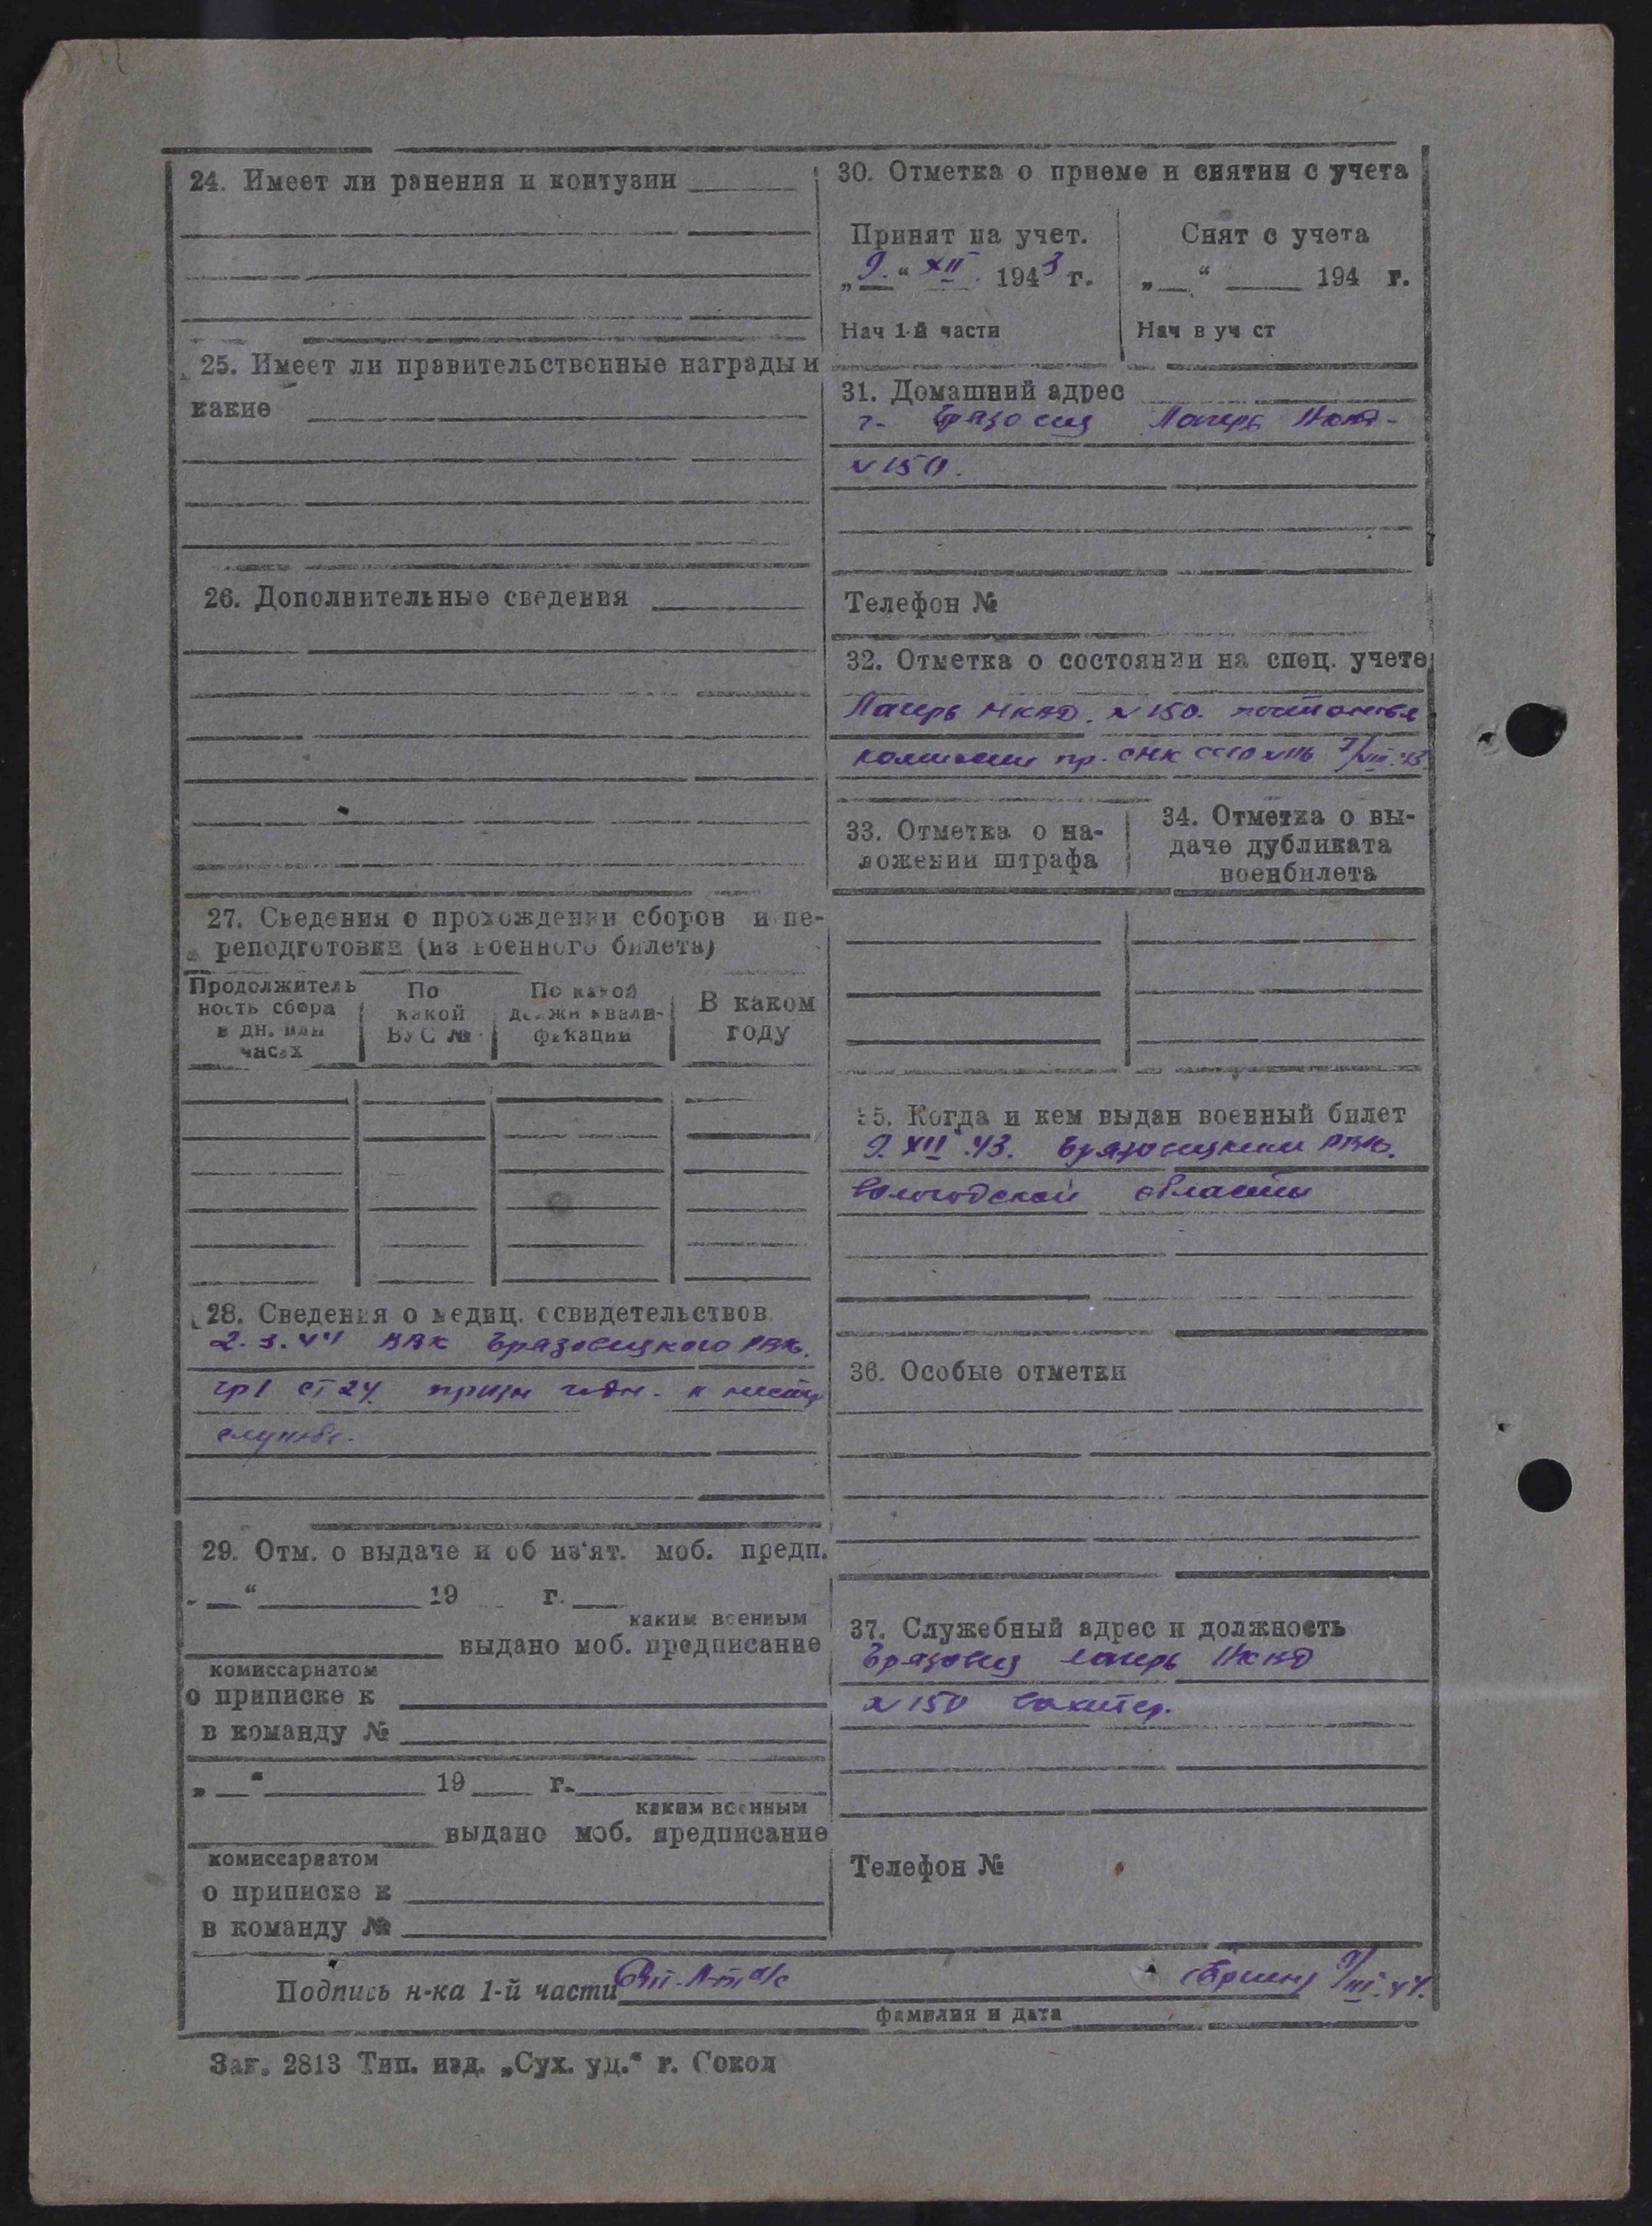 24. Имеет ли ранения и контузии
25. Имеет ли правительственные награды и
какие
26. Дополнительные сведения
27. Сведения о прохождении сборов и пе-
реподготовки (из военного билета)
Продолжитель
ность сбора
в дн. или
часах
По
какой
ВУС №
По какой
должн квали-
фикации
В каком
году
28. Сведения о медиц. освидетельствов.
2.3.44 ВВК Грязовецкого РВК.
гр I ст 24. призн годн. к
службе.
29. Отм. о выдаче и об из'ят. моб. предп.
„ “ 19 г.
каким военным
выдано моб. предписание
комиссариатом
о приписке к
в команду №
„ “ 19 г.
каким военным
выдано моб. предписание
комиссариатом
о приписке к
в команду №
30. Отметка о приеме и снятии с учета
Принят на учет.
„9.“ XII. 1943 г.
Нач 1-й части
Снят с учета
„ “ 194 г.
Нач в уч ст
31. Домашний адрес
г. Грязовец Лагерь НКВД
№ 150.
Телефон №
32. Отметка о состоянии на спец. учете
Лагерь НКВД. № 150. постановл
комиссии пр. СНК СССР 7/VIII.43.
33. Отметка о на-
ложении штрафа
34. Отметка о вы-
даче дубликата
военбилета
35. Когда и кем выдан военный билет
9.XII.43. Грязовецким РВК.
Вологодской области
36. Особые отметки
37. Служебный адрес и должность
Грязовец лагерь НКВД
№ 150 Вахтер.
Телефон №
Подпись н-ка 1-й части /III.44.
фамилия и дата
Заг. 2813 Тип. изд. „Сух. уд.“ г. Сокол